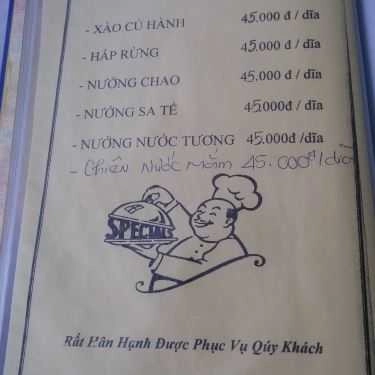 - XÀO CỦ HÀNH 45.000 đ / dĩa
- HẤP RỪNG 45.000 đ / dĩa
- NƯỚNG CHAO 45.000 đ / dĩa
- NƯỚNG SA TẾ 45.000đ / dĩa
- NƯỚNG NƯỚC TƯƠNG 45.000đ /dĩa
- Chiên nước mắm 45.000đ/dĩa
SPECIALS
Rất Hân Hạnh Được Phục Vụ Qúy Khách